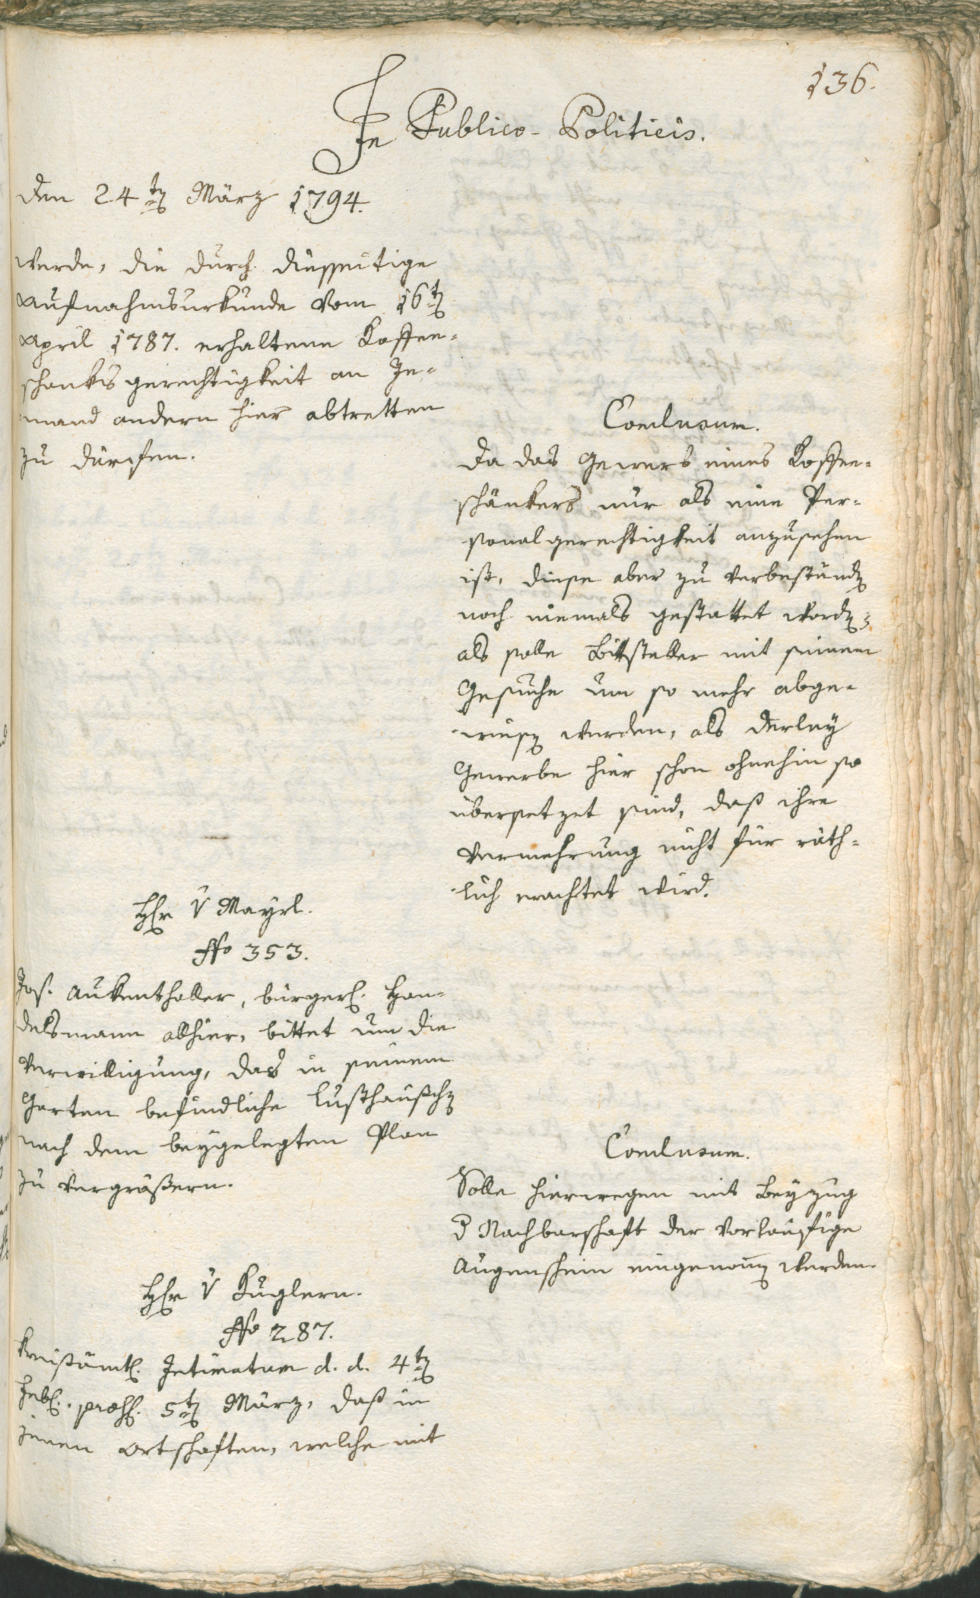 136.
In Publico-Politicis.
Den 24ten März 1794.
werde, die durch diesseitige
Aufnahmsurkunde vom 16t
April 1787. erhaltene Koffee-
schanksgerechtigkeit an Je-
mand andern hier abtretten
zu därfen.
Conclusum.
Da das Gewerb eines Koffee-
schänkers nur als eine Per-
sonalgerechtigkeit anzusehen
ist, diese aber zu verbeständen
noch niemals gestattet worden;
als solle Bittsteller mit seinem
Gesuche um so mehr abge-
wiesen werden, als derley
Gewerbe hier schon ohnehin so
übersetzet sind, daß ihre
Vermehrung nicht für räth-
lich erachtet wird.
Hr v Mayrl.
No 353.
Jos. Aukenthaller, bürgerl. Han-
delsmann allhier, bittet um die
Verwilligung, das in seinem
Garten befindliche Lusthäuschen
nach dem beygelegten Plan
zu vergrößern.
Conclusum.
Solle hierwegen mit Beyzug
d Nachbarschaft der vorläufige
Augenschein eingenomen werden.
Hr v Kuglern.
No 287.
Kreisämtl. Intimatum d. d. 4ten
Febl. 5ten März, daß in
jenen Ortschaften, welche mit